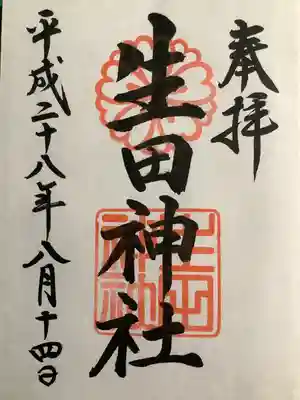 奉拝
生田神社
平成二十八年八月十四日
生田神社